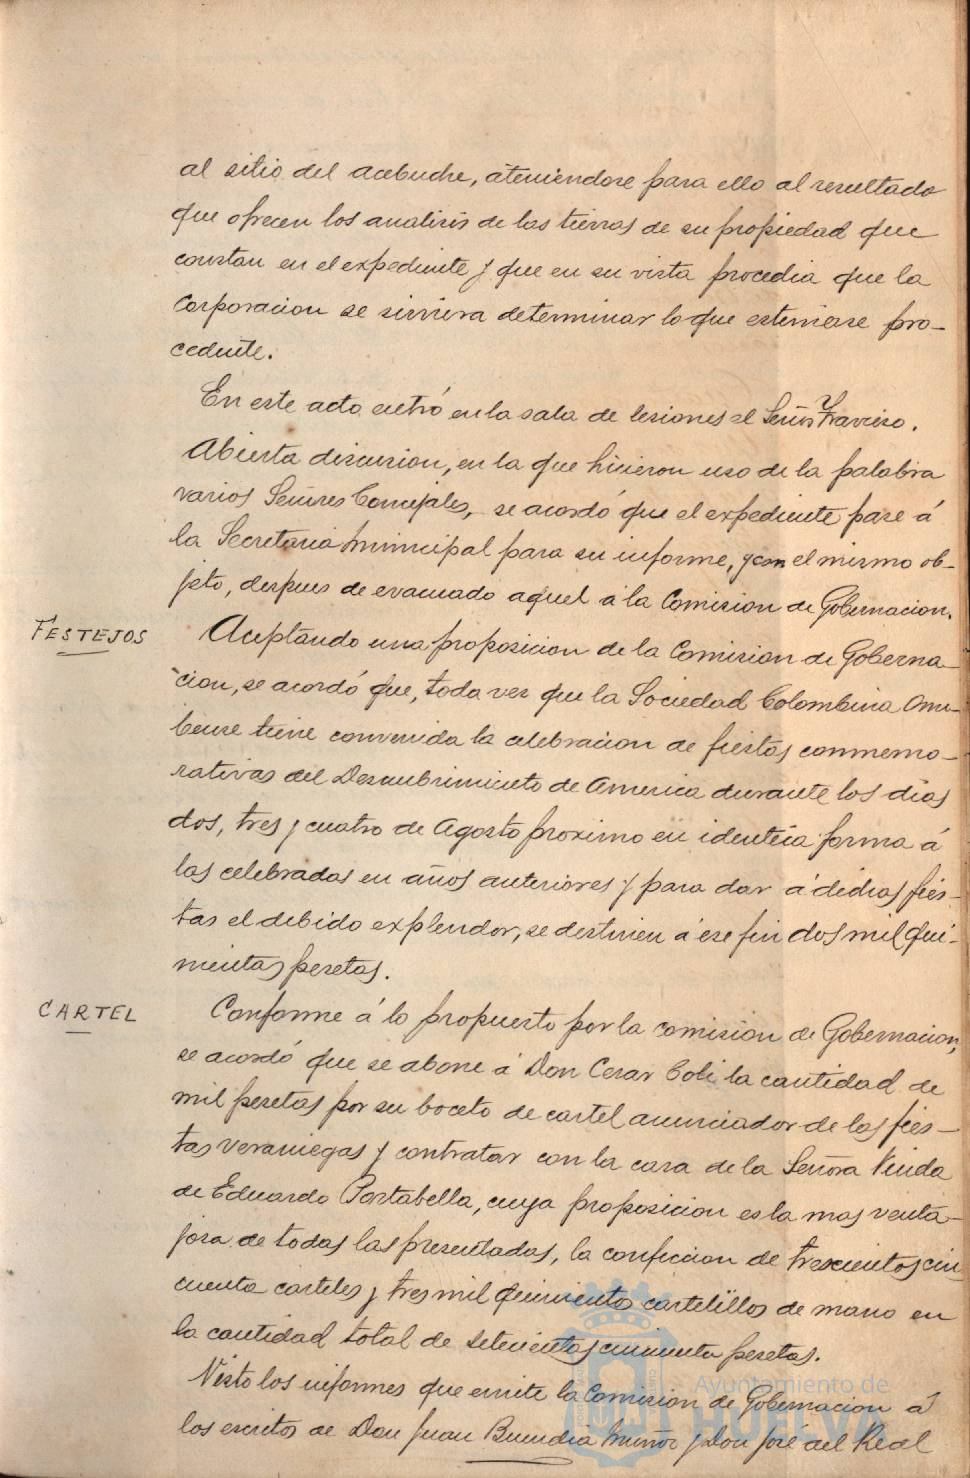 al sitio del acebuche, ateniendose para ello al resultado
que ofrecen los analisis de las tierras de su propiedad que
constan en el expediente y que en su vista procedia que la
Corporacion se sirviera determinar lo que estimase pro-
cedente.
En este acto entró en la sala de sesiones el Señor
Abierta discusion, en la que hicieron uso de la palabra
varios Señores Concejales, se acordó que el expediente pase á
la Secretaria Municipal para su informe, y con el mismo ob-
jeto, despues de evacuado aquel a la Comision de Gobernacion.
FESTEJOS
Aceptando una proposicion de la Comision de Goberna-
cion, se acordó que, toda vez que la Sociedad Colombina Onu-
bense tiene convenida la celebracion de fiestas conmemo-
rativas del Descubrimiento de America durante los dias
dos, tres y cuatro de Agosto proximo en identica forma á
las celebradas en años anteriores y para dar á dichas fies-
tas el debido explendor, se destinen á ese fin dos mil qui-
nientas pesetas.
CARTEL
Conforme á lo propuesto por la comision de Gobernacion,
se acordó que se abone á Don Cesar Coli la cantidad de
mil pesetas por su boceto de cartel anunciador de las fies-
tas veraniegas y contratar con la casa de la Señora Viuda
de Eduardo Portabella, cuya proposicion es la mas venta-
josa de todas las presentadas, la confeccion de trescientos cin
cuenta carteles y tres mil quinientos cartelillos de mano en
la cantidad total de setecientas cincuenta pesetas.
Visto los informes que emite la Comision de Gobernacion á
los escritos de Don Juan Buendia Muñoz y Don José del Real
Ayuntamiento de
HUELVA